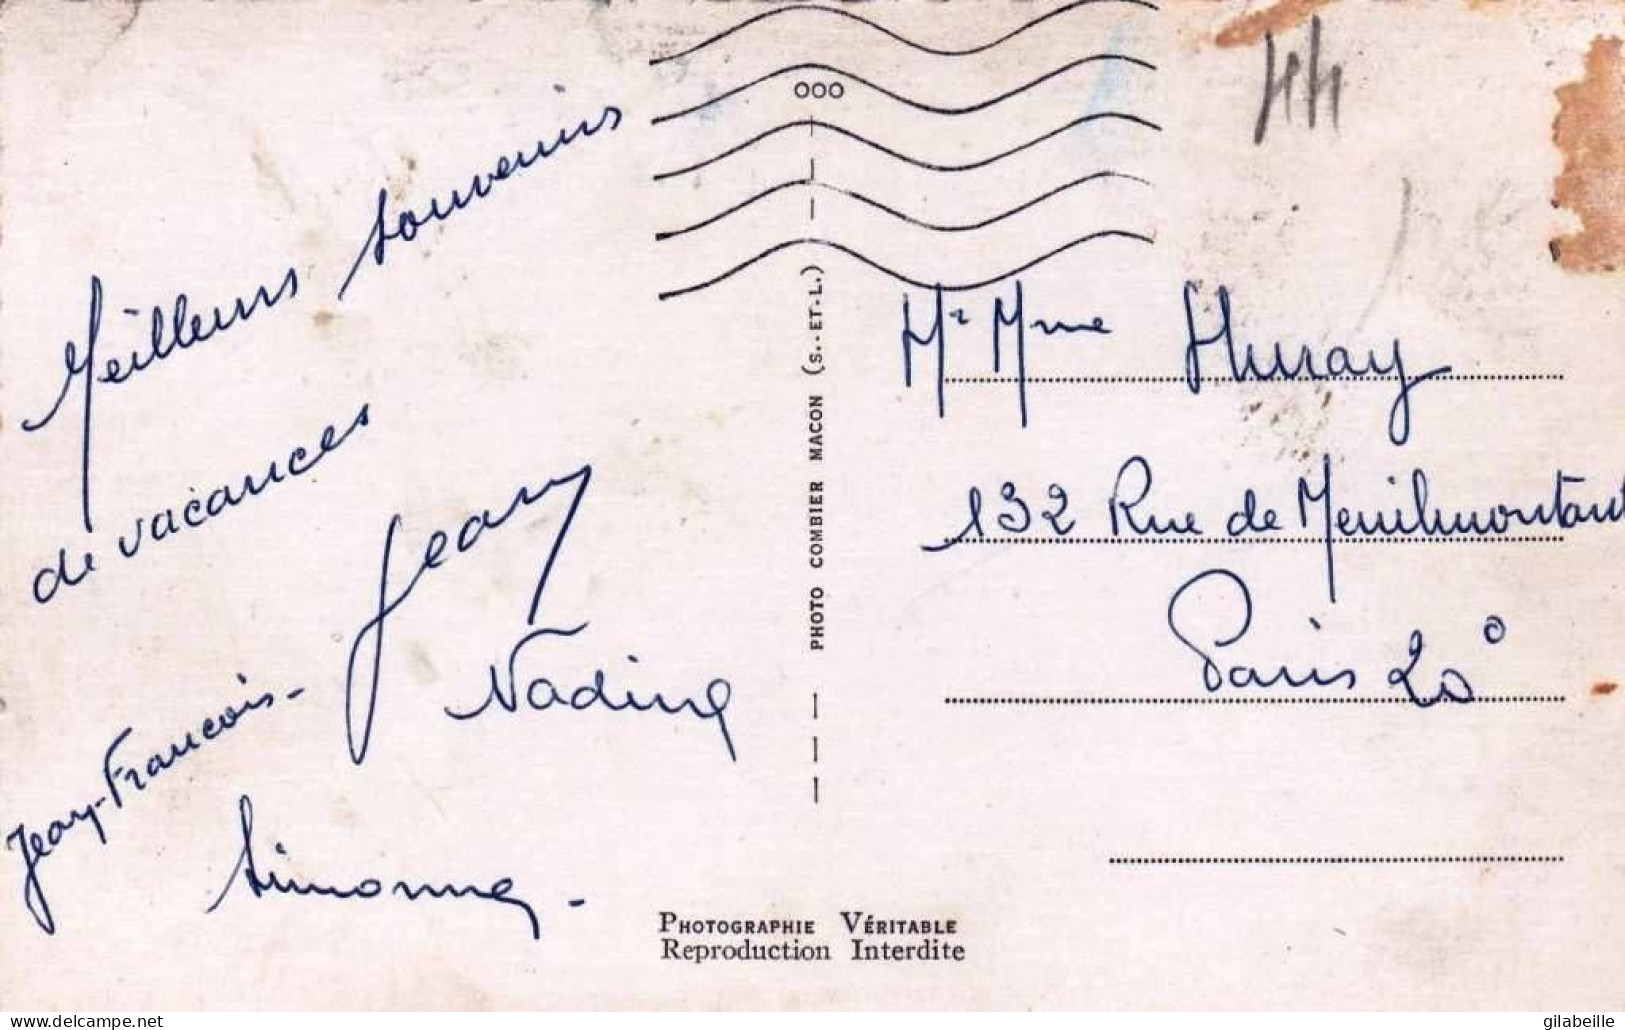 Meilleurs souvenirs
de vacances
Jean
Nadine
Jean-Francois-
Simonne-
OOO
PHOTO COMBIER MACON (S.-ET-L.)
44
Mr Mme
132 Rue de Menilmontant
Paris 20°
PHOTOGRAPHIE VÉRITABLE
Reproduction Interdite
delcampe.net
gilabeille